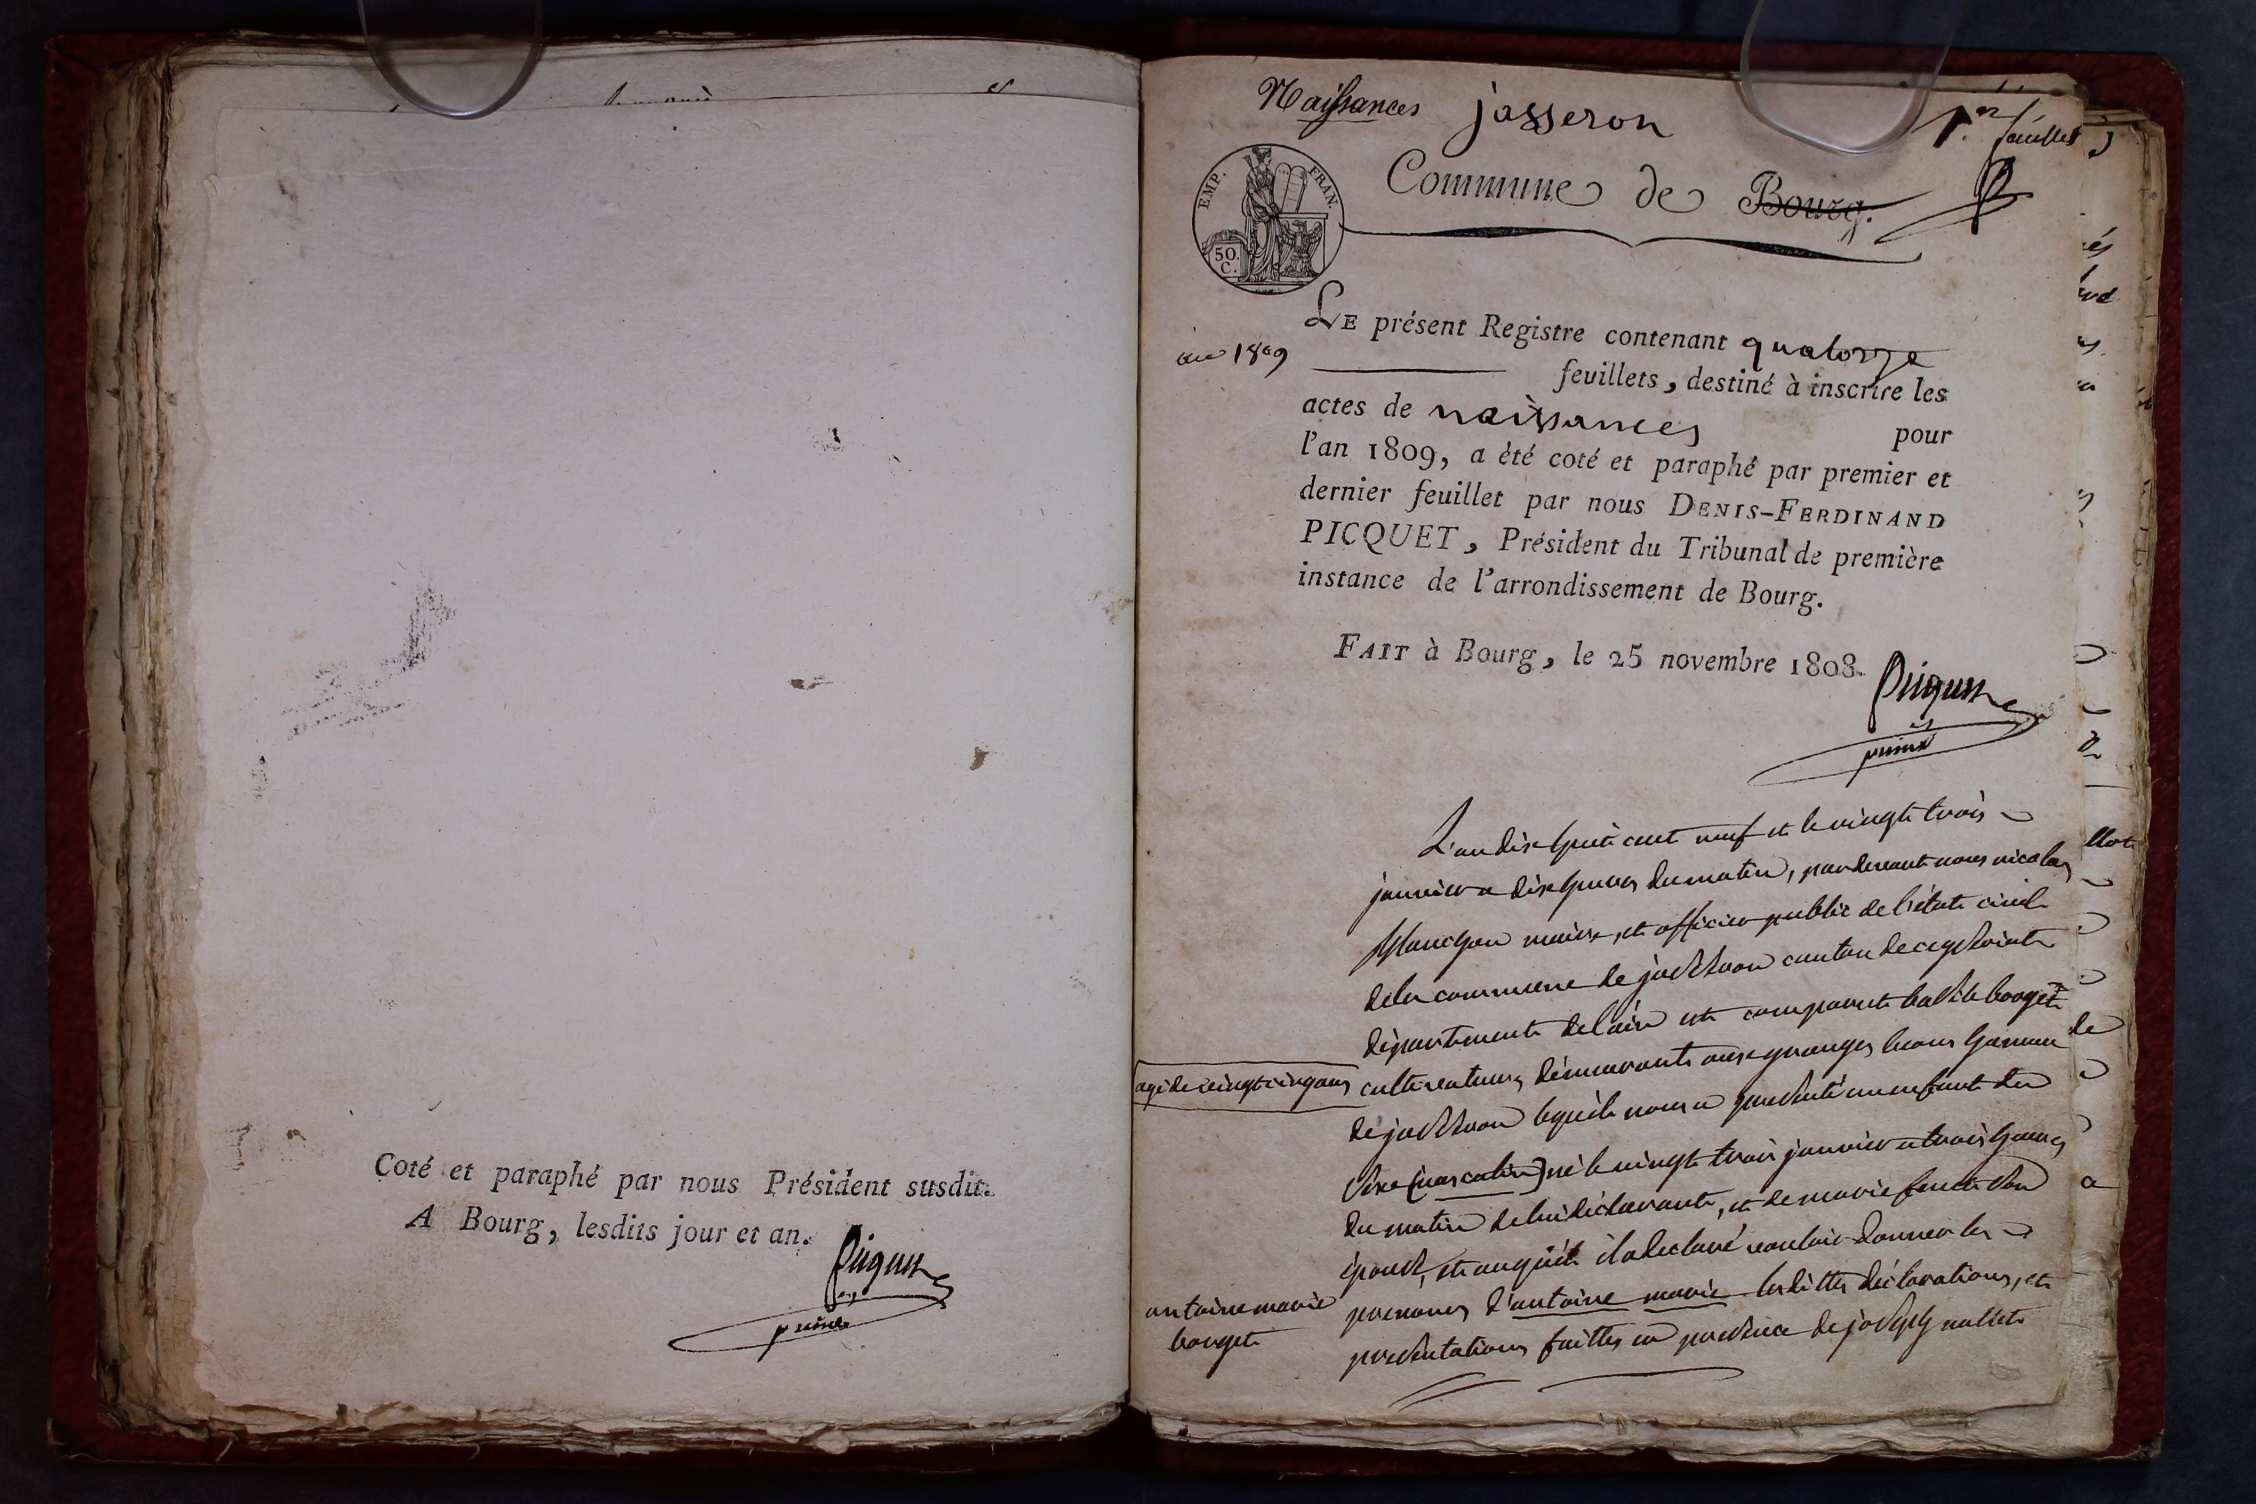 Coté et paraphé par nous Président susdit.
A Bourg, lesdits jour et an.
Picquet
Naissances jasseron
1.er feuillet
Commune de Bourg.
EMP. FRAN.
50.
C.
LE présent Registre contenant quatorze
an 1809
feuillets, destiné à inscrire les
actes de naissances pour
l'an 1809, a été coté et paraphé par premier et
dernier feuillet par nous DENIS-FERDINAND
PICQUET, Président du Tribunal de première
instance de l'arrondissement de Bourg.
FAIT à Bourg, le 25 novembre 1808.
Picquet
L'an dix huit cent neuf et le vingt trois
janvier a dix heures du matin, pardevant nous nicolas
planchon maire, et officier public de l'état civil
de la commune de jasseron canton de ceyseriat
département de l'ain est comparut bouget
agé de vingt cinq ans
cultivateur, demeurant aux granges
de jasseron lequel nous a presenté un enfant du
sexe (mascalin) né le vingt trois janvier a trois heures
du matin de lui déclarant, et de marie son
épouse, et auquel il a declaré vouloir donner les
prenoms d'antoine marie lesdittes déclarations, et
presentations faittes en presence de joseph
antoine marie
bouget